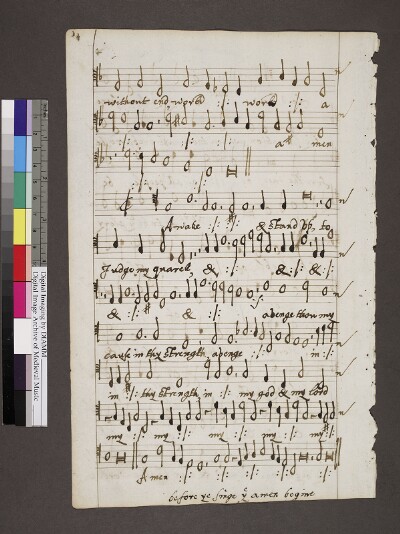 without end, world :/: world :/: a
:/: :/: a men
:/:
Awake :/: & stand vp. to
Judge my quarel, & :/: &:/: &:/:
& :/: & :/: avenge thou my
cause in thy strength avenge :/: in :/:
in :/: thy strength in :/: my god & my Lord
my :/: my :/: my :/: my :/: my:/:
Amen :/: :/: :/: :/: :/:
before ye singe yͤ amen begine
Digital Imaging by DIAMM
Digital Image Archive of Medieval Music